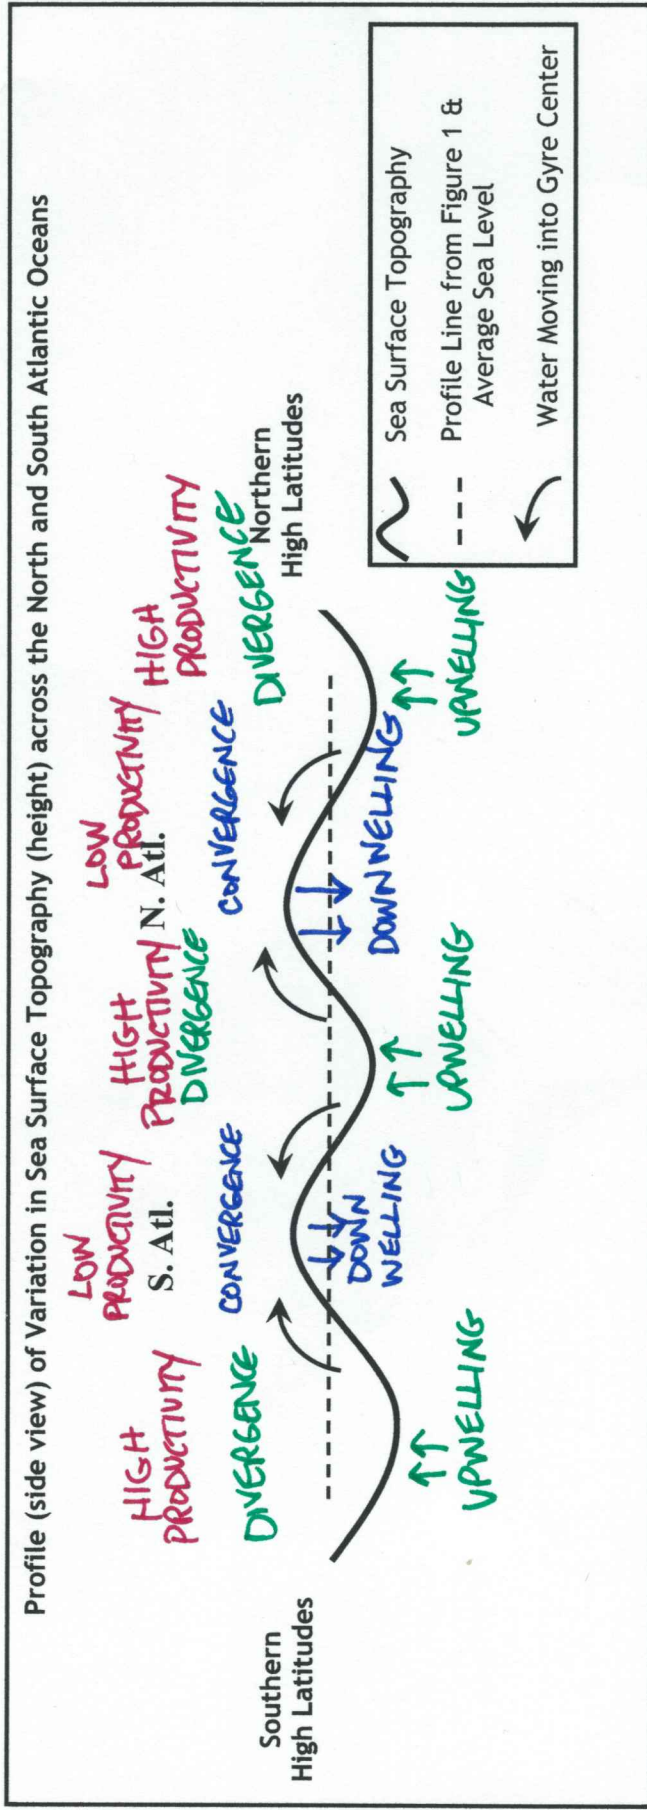 Profile (side view) of Variation in Sea Surface Topography (height) across the North and South Atlantic Oceans
HIGH
PRODUCTIVITY
LOW
PRODUCTIVITY
S. Atl.
HIGH
PRODUCTIVITY
DIVERGENCE
LOW
PRODUCTIVITY
N. Atl.
HIGH
PRODUCTIVITY
DIVERGENCE
CONVERGENCE
CONVERGENCE
DIVERGENCE
Southern
High Latitudes
Northern
High Latitudes
UPWELLING
DOWN
WELLING
UPWELLING
DOWNWELLING
UPWELLING
Sea Surface Topography
Profile Line from Figure 1 &
Average Sea Level
Water Moving into Gyre Center